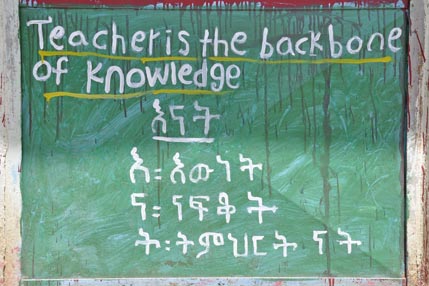 Teacher is the backbone
of Knowledge
እናት
እ = እውነት
ና = ናፍቆት
ት = ትምህርት ናት